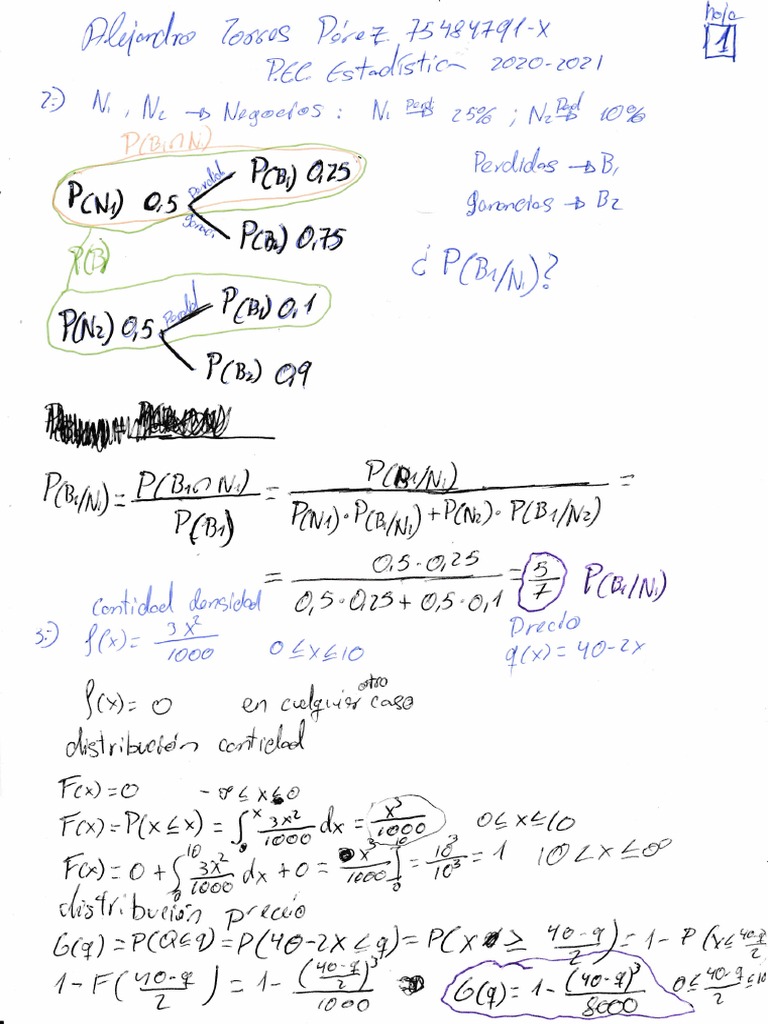 hoja
1
Alejandro Torres Pérez 75484791-X
P.E.C. Estadística 2020-2021
2:) N₁, N₂ → Negocios: N₁ Perd→ 25% ; N₂ Perd→ 10%
P(B₁∩N₁)
P(N₁) 0,5 Perdid P(B₁) 0,25
Perdidas → B₁
ganancias → B₂
P(B₂) 0,75
P(B)
¿P(B₁/N₁)?
P(N₂) 0,5 Perdid P(B₁) 0,1
P(B₂) 0,9
P(B₁/N₁) = P(B₁∩N₁) / P(B₁) = P(B₁/N₁) / P(N₁)·P(B₁/N₁)+P(N₂)·P(B₁/N₂) =
= 0,5·0,25 / 0,5·0,25+0,5·0,1 = 5/7 P(B₁/N₁)
cantidad densidad
Precio
3:) f(x) = 3x²/1000 0≤x≤10 q(x) = 40-2x
f(x) = 0 en culquier otro caso
distribución cantidad
F(x) = 0 -∞≤x≤0
F(x) = P(x≤x) = ∫₀ˣ 3x²/1000 dx = x³/1000 0≤x≤10
F(x) = 0 + ∫₀¹⁰ 3x²/1000 dx + 0 = x³/1000 ∫₀¹⁰ = 10³/10³ = 1 10<x≤∞
distribución precio
G(q) = P(Q≤q) = P(40-2x≤q) = P(x ≥ 40-q/2) = 1 - P(x≤40-q/2
1-F(40-q/2) = 1 - (40-q/2)³/1000 G(q) = 1 - (40-q)³/8000 0≤40-q/2≤10